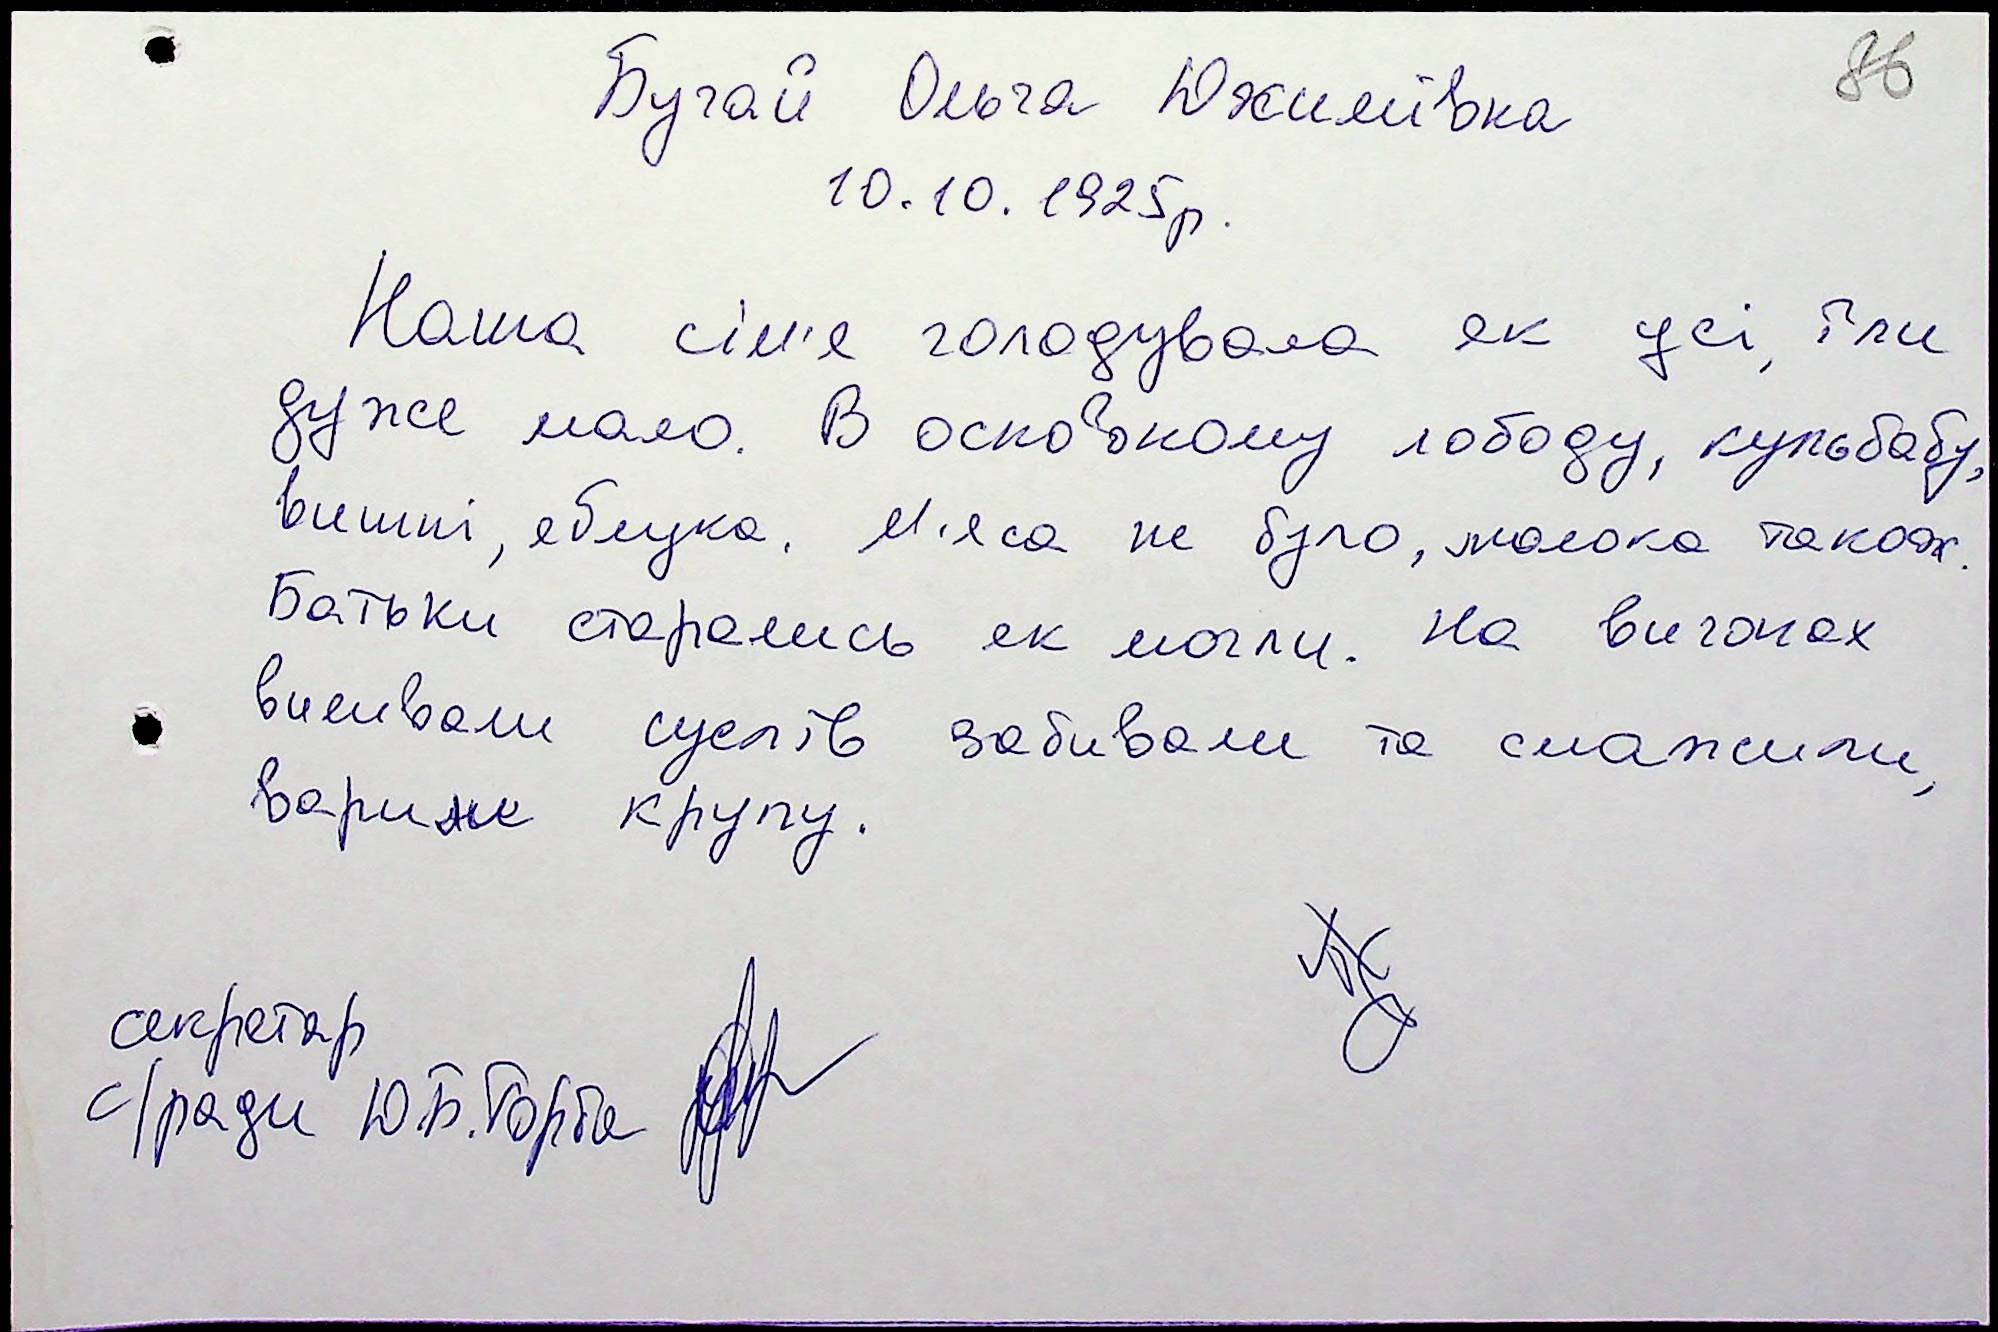 86
Бугай Ольга Юхимівна
10.10.1925р.
Наша сім'я голодувала як усі, їли
дуже мало. В основному лободу, кульбабу,
вишні, яблука. М'яса не було, молока також.
Батьки старались як могли. На вигонах
виливали суслів забивали та смажили,
крупу.
секретар
с/ради Ю.Б. Горба